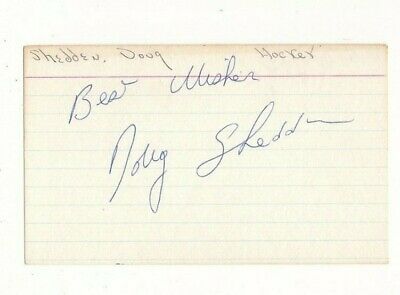 Shedden, Doug Hockey
Best Wishes
Doug Shedden